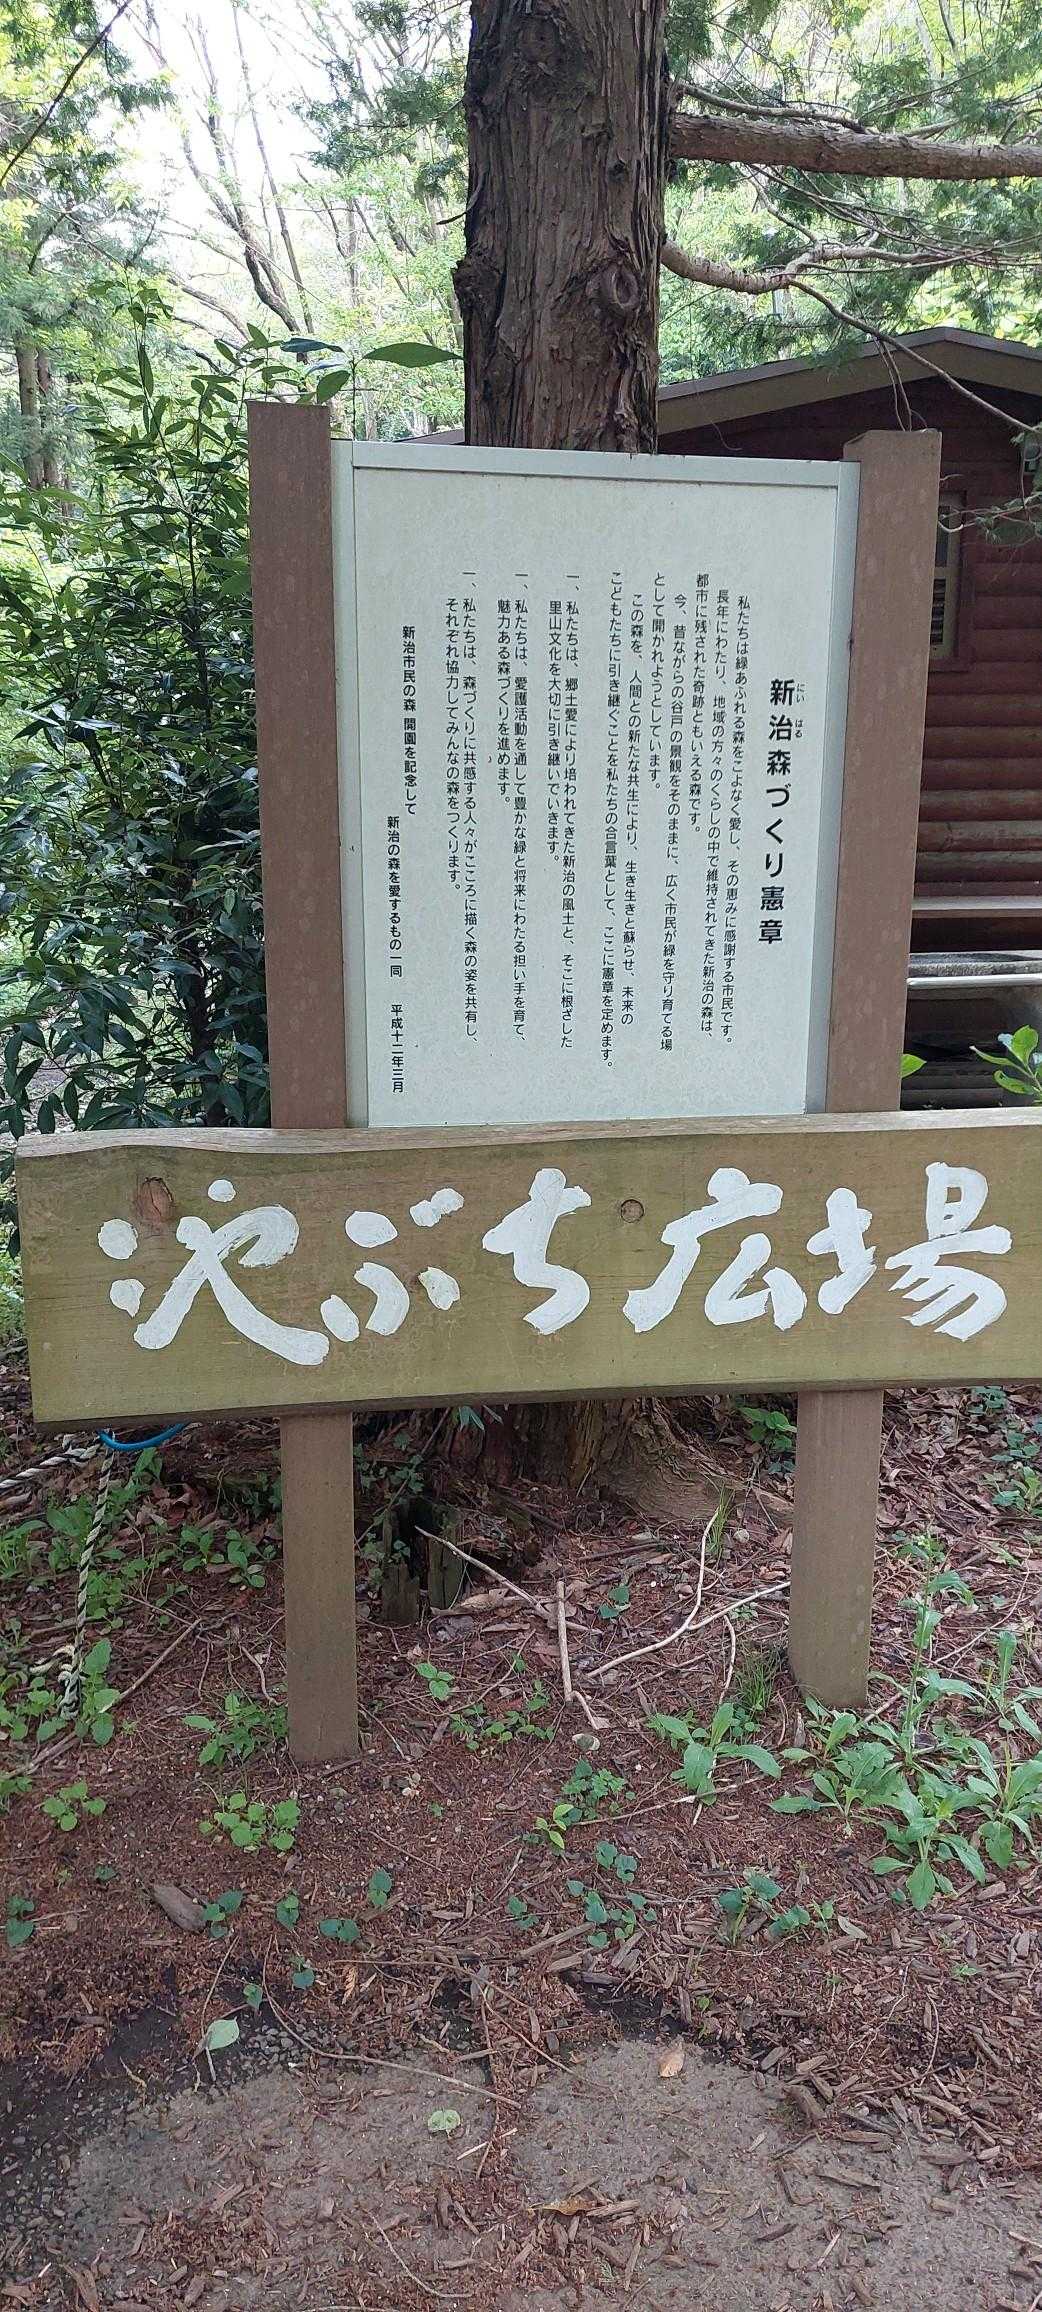 新治森づくり憲章
にい はる
私たちは緑あふれる森をこよなく愛し、その恵みに感謝する市民です。
長年にわたり、地域の方々のくらしの中で維持されてきた新治の森は、
都市に残された奇跡ともいえる森です。
今、昔ながらの谷戸の景観をそのままに、広く市民が緑を守り育てる場
として開かれようとしています。
この森を、人間との新たな共生により、生き生きと蘇らせ、未来の
こどもたちに引き継ぐことを私たちの合言葉として、ここに憲章を定めます。
一、私たちは、郷土愛により培われてきた新治の風土と、そこに根ざした
里山文化を大切に引き継いでいきます。
一、私たちは、愛護活動を通して豊かな緑と将来にわたる担い手を育て、
魅力ある森づくりを進めます。
一、私たちは、森づくりに共感する人々がこころに描く森の姿を共有し、
それぞれ協力してみんなの森をつくります。
新治市民の森 開園を記念して
新治の森を愛するもの一同 平成十二年三月
池ぶち広場